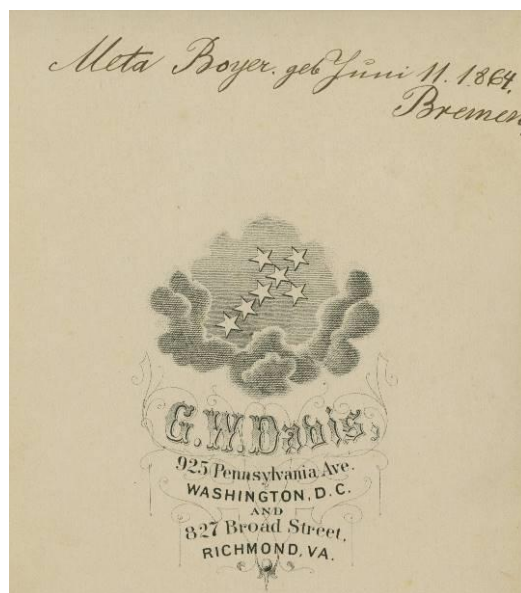 Meta Boyer. geb Juni 11. 1864.
Bremen
G. W. Davis,
925 Pennsylvania Ave.
WASHINGTON, D. C.
AND
827 Broad Street,
RICHMOND, VA.